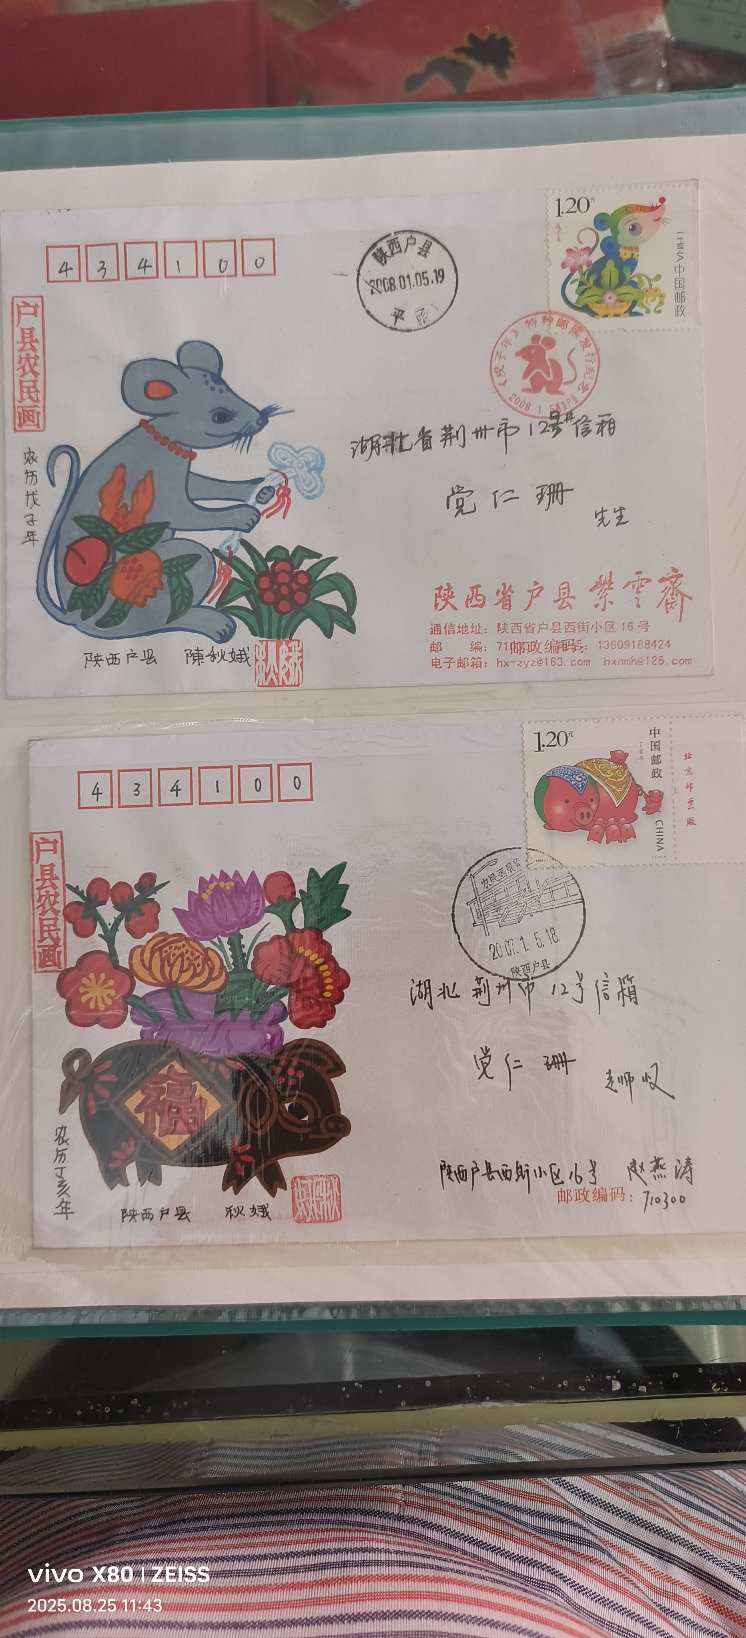 434100
陕西户县
2008.01.05.19
1.20元
中国邮政
CHINA
户县农民画
《戊子年》特种邮票发行纪念
2008.1.5
农历戊子年
湖北省荆州市12号信箱
党仁珊
先生
陕西省户县紫云斋
通信地址：陕西省户县西街小区16号
电子邮箱：hx-zyz@163.com hxnmh@126.com
陕西户县 陳秋娥
434100
1.20元
中国邮政
CHINA
北京邮票厂
户县农民画
2007.1.5.18
陕西户县
湖北荆州市12号信箱
党仁珊
老师收
福
农历丁亥年
陕西户县西街小区16号 赵燕涛
邮政编码：710300
陕西户县 秋娥
vivo X80 | ZEISS
2025.08.25 11:43